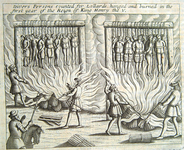 Severs Persons counted for Lollards hanged and burned in the
first year of the Reign of King Henry the V.